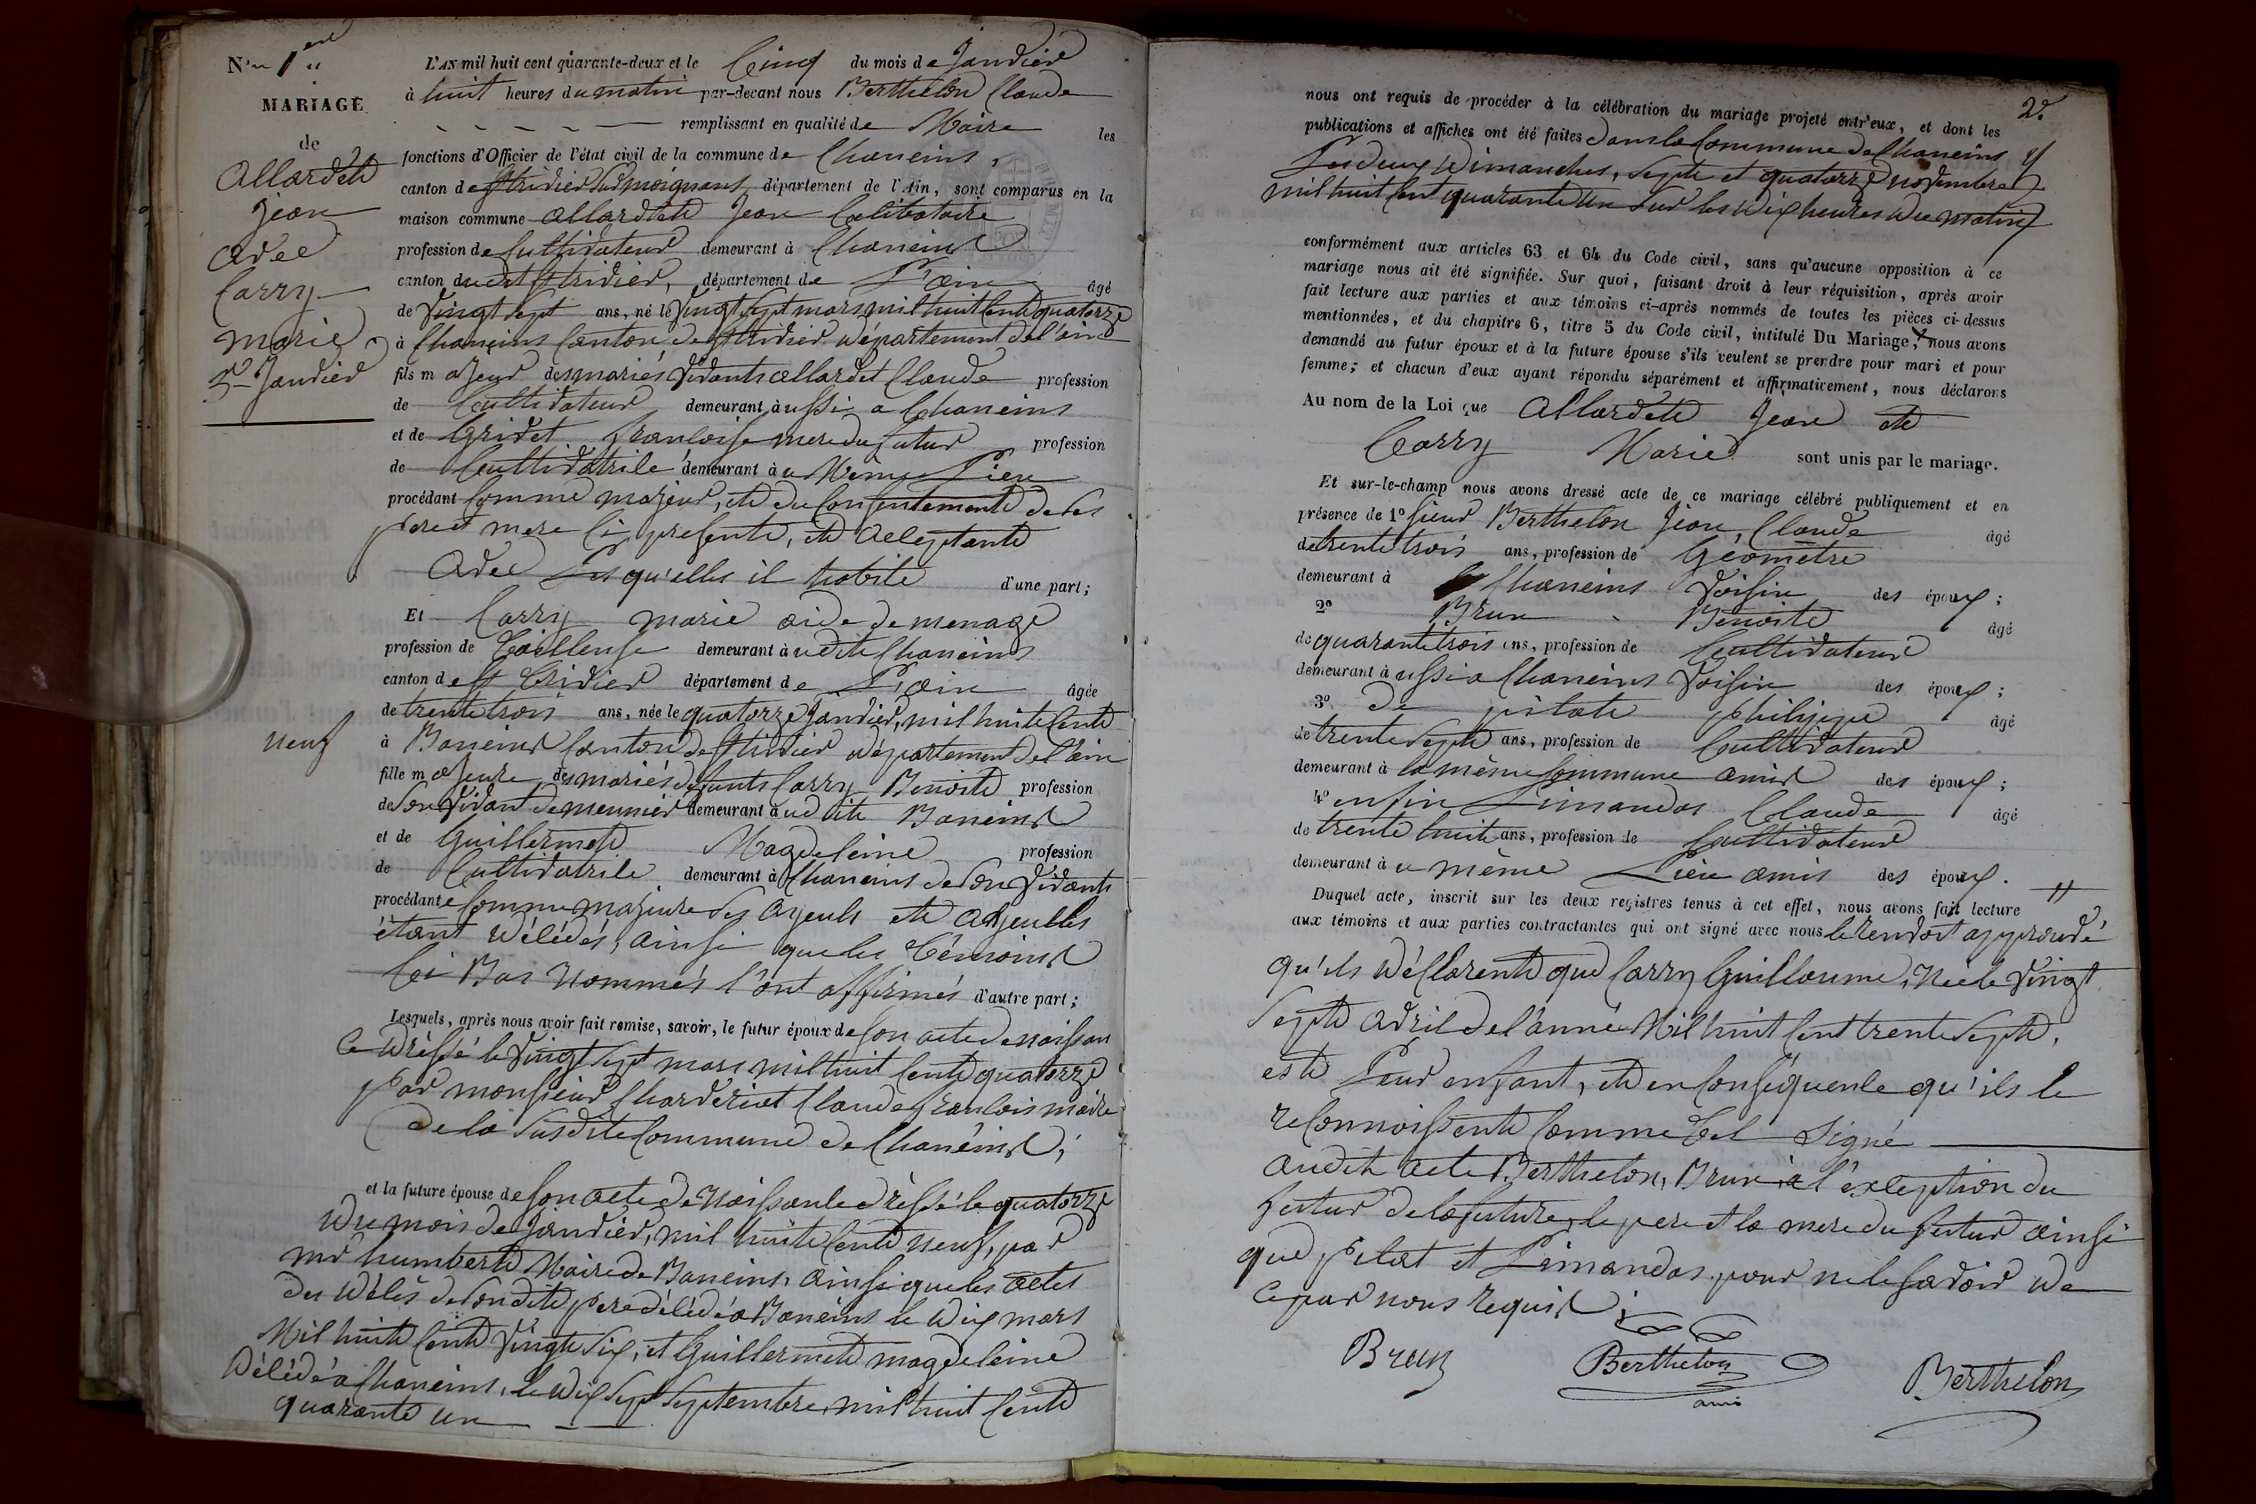 N° 1er
MARIAGE
de
Allardet
Jean
avec
Carry
Marie
5 Janvier
neuf
L'AN mil huit cent quarante-deux et le Cinq du mois de Janvier
à huit heures du matin par-devant nous Berthelon Claude
remplissant en qualité de Maire les
fonctions d'Officier de l'état civil de la commune de Chaneins,
canton de St trivier sur moignans, département de l'Ain, sont comparus en la
maison commune allardet Jean Celibataire
profession de Cultivateur demeurant à Chaneins
canton dudit St trivier, département de L'ain âgé
de vingt sept ans, né le vingt sept mars mil huit Cent quatorze
à Chaneins Canton de St trivier département de l'ain
fils majeur des mariés vivants allardet Claude profession
de Cultivateur demeurant aussi a Chaneins
et de Grivet francoise mere du futur profession
de Cultivatrice demeurant au Même Lieu
procédant Comme majeur, et du Consentement de ses
pere et mere Ci presents, et acceptants
avec Lesqu'elles il habite d'une part;
Et Carry marie aide de menage
profession de Tailleuse demeurant audit Chaneins
canton de St Trivier département de L'ain âgée
de trente trois ans, née le quatorze Janvier, mil huit Cent
à Baneins Canton de St trivier département de l'ain
fille majeure des mariés défunts Carry Benoit profession
de son vivant de meunier demeurant audit Baneins
et de Guillermet Magdeleine profession
de Cultivatrice demeurant à Chaneins de son vivant
procédante Comme majeure ses ayeuls et ayeulles
étant décédés, ainsi que les témoins
Ci Bas nommés l'ont affirmés d'autre part;
Lesquels, après nous avoir fait remise, savoir, le futur époux de son acte de naissan
ce dréssé le vingt sept mars mil huit Cent quatorze
par monsieur Charderiat Claude francois maire
de la susdite Commune de Chanéins;
et la future épouse de son acte de Naissance dréssé le quatorze
du mois de Janvier, mil huit Cent neuf, par
mr humbert Maire de Baneins, ainsi que les actes
des décès de son dit pere décédé a Baneins le dix mars
Mil huit Cent vingt six, et Guillermet magdeleine
décédé a Chaneins, le dix sept septembre mil huit Cent
quarante un
2e
nous ont requis de procéder à la célébration du mariage projeté entr'eux, et dont les
publications et affiches ont été faites dans la Commune de Chaneins
Les deux Dimanches, sept et quatorze novembre
mil huit Cent quarante un sur les dix heures du matin
conformément aux articles 63 et 64 du Code civil, sans qu'aucune opposition à ce
mariage nous ait été signifiée. Sur quoi, faisant droit à leur réquisition, après avoir
fait lecture aux parties et aux témoins ci-après nommés de toutes les pièces ci-dessus
mentionnées, et du chapitre 6, titre 5 du Code civil, intitulé Du Mariage, nous avons
demandé au futur époux et à la future épouse s'ils veulent se prendre pour mari et pour
femme; et chacun d'eux ayant répondu séparément et affirmativement, nous déclarons
Au nom de la Loi que Allardet Jean et
Carry Marie sont unis par le mariage.
Et sur-le-champ nous avons dressé acte de ce mariage célébré publiquement et en
présence de 1° sieur Berthelon Jean Claude âgé
de trente trois ans, profession de Géometre
demeurant à Chaneins Voisin des époux;
2° Brun Benoit âgé
de quarante trois ans, profession de Cultivateur
demeurant aussi a Chaneins Voisin des époux;
3° de pilat philippe âgé
de trente sept ans, profession de Cultivateur
demeurant à la même Commune amis des époux;
4° enfin Limandas Claude âgé
de trente huit ans, profession de Cultivateur
demeurant au même Lieu amis des époux.
Duquel acte, inscrit sur les deux registres tenus à cet effet, nous avons fait lecture
aux témoins et aux parties contractantes qui ont signé avec nous le renvoi approuvé
qu'ils déclarent que Carry Guillaume, Né le vingt
sept avril de l'année Mil huit Cent trente sept,
est Leur enfant, et en Conséquence qu'ils le
reconnoissent Comme Tel signé
audit acte Berthelon, Brun à l'exception du
futur de la future, le pere et la mere du futur ainsi
que pilat et Limandas, pour ne le savoir de
Ce par nous requis;
Brun Berthelon Berthelon
ami